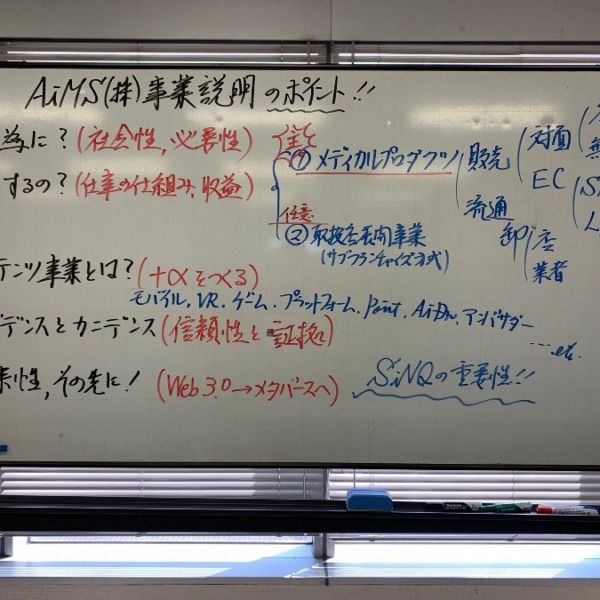 AiMS(株)事業説明のポイント!!
為に?(社会性,必要性)
するの?(仕事の仕組み,収益)
① メディカルプロダクツ
販売
対面
EC
流通
卸
店
業者
任意
② 取扱店展開事業
(サブフランチャイズ方式)
テンツ事業とは?(+αをつくる)
モバイル,VR.ゲーム.プラットフォーム.Point.アンバサダー
....etc.
デンスとカニデンス(信頼性と証拠)
来性,その先に!(Web3.0→メタバースへ)
SiNQの重要性!!